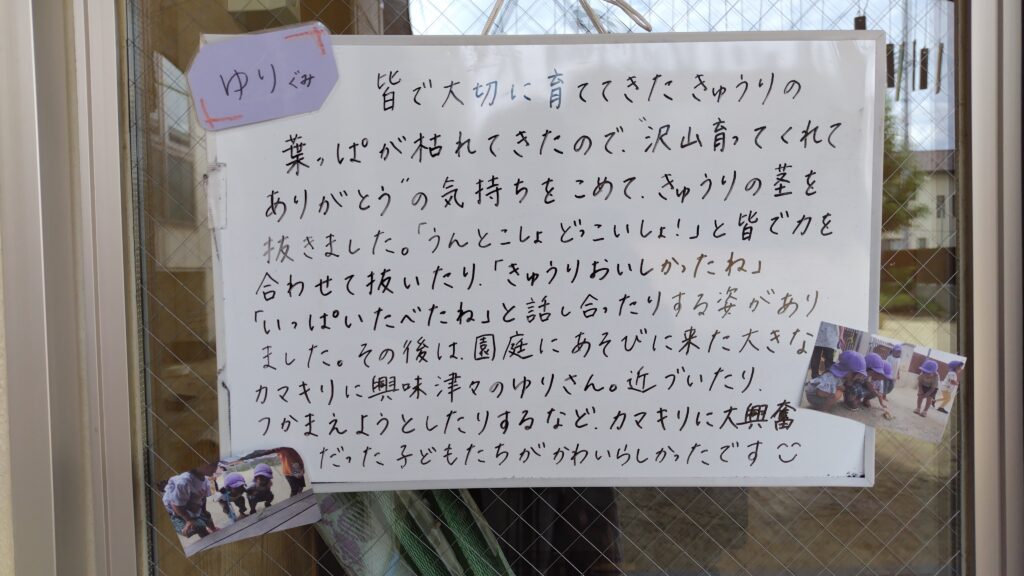 ゆりぐみ
皆で大切に育ててきたきゅうりの
葉っぱが枯れてきたので、"沢山育ってくれて
ありがとう"の気持ちをこめて、きゅうりの茎を
抜きました。「うんとこしょ どっこいしょ!」と皆で力を
合わせて抜いたり、「きゅうりおいしかったね」
「いっぱいたべたね」と話し合ったりする姿があり
ました。その後は、園庭にあそびに来た大きな
カマキリに興味津々のゆりさん。近づいたり、
つかまえようとしたりするなど、カマキリに大興奮
だった子どもたちがかわいらしかったです